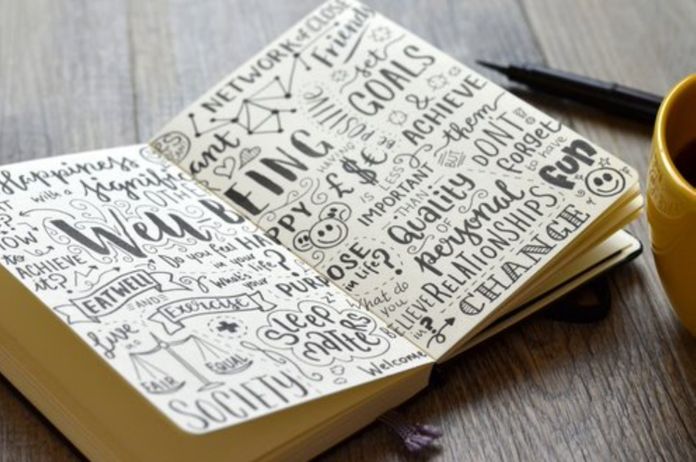 Happiness
with a significant
OTHER
HOW to ACHIEVE it?
Well BEING
Do you feel HAPPY
in your life?
What's your PURPOSE
in life?
EAT WELL
AND
Exercise
Live in a
FAIR
EQUAL
SOCIETY
Sleep matters
Welcome
NETWORK of CLOSE
Friend
set GOALS
& ACHIEVE
them
BUT
DON'T
forget
to have
fun
THINK POSITIVE
HAVING
£$€
IS LESS
IMPORTANT
THAN
Quality
OF
personal
RELATIONSHIPS
What do
you
BELIEVE
in?
CHANGE